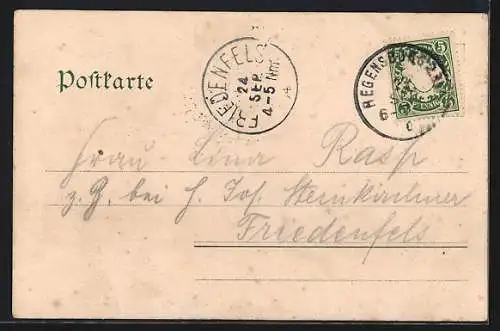 Postkarte
FRIEDENFELS
24
SEP.
4-5 Nm.
REGENSBURG
5
Frau Lina Rasp
z. Z. bei H. Jos. Steinkirchner
Friedenfels